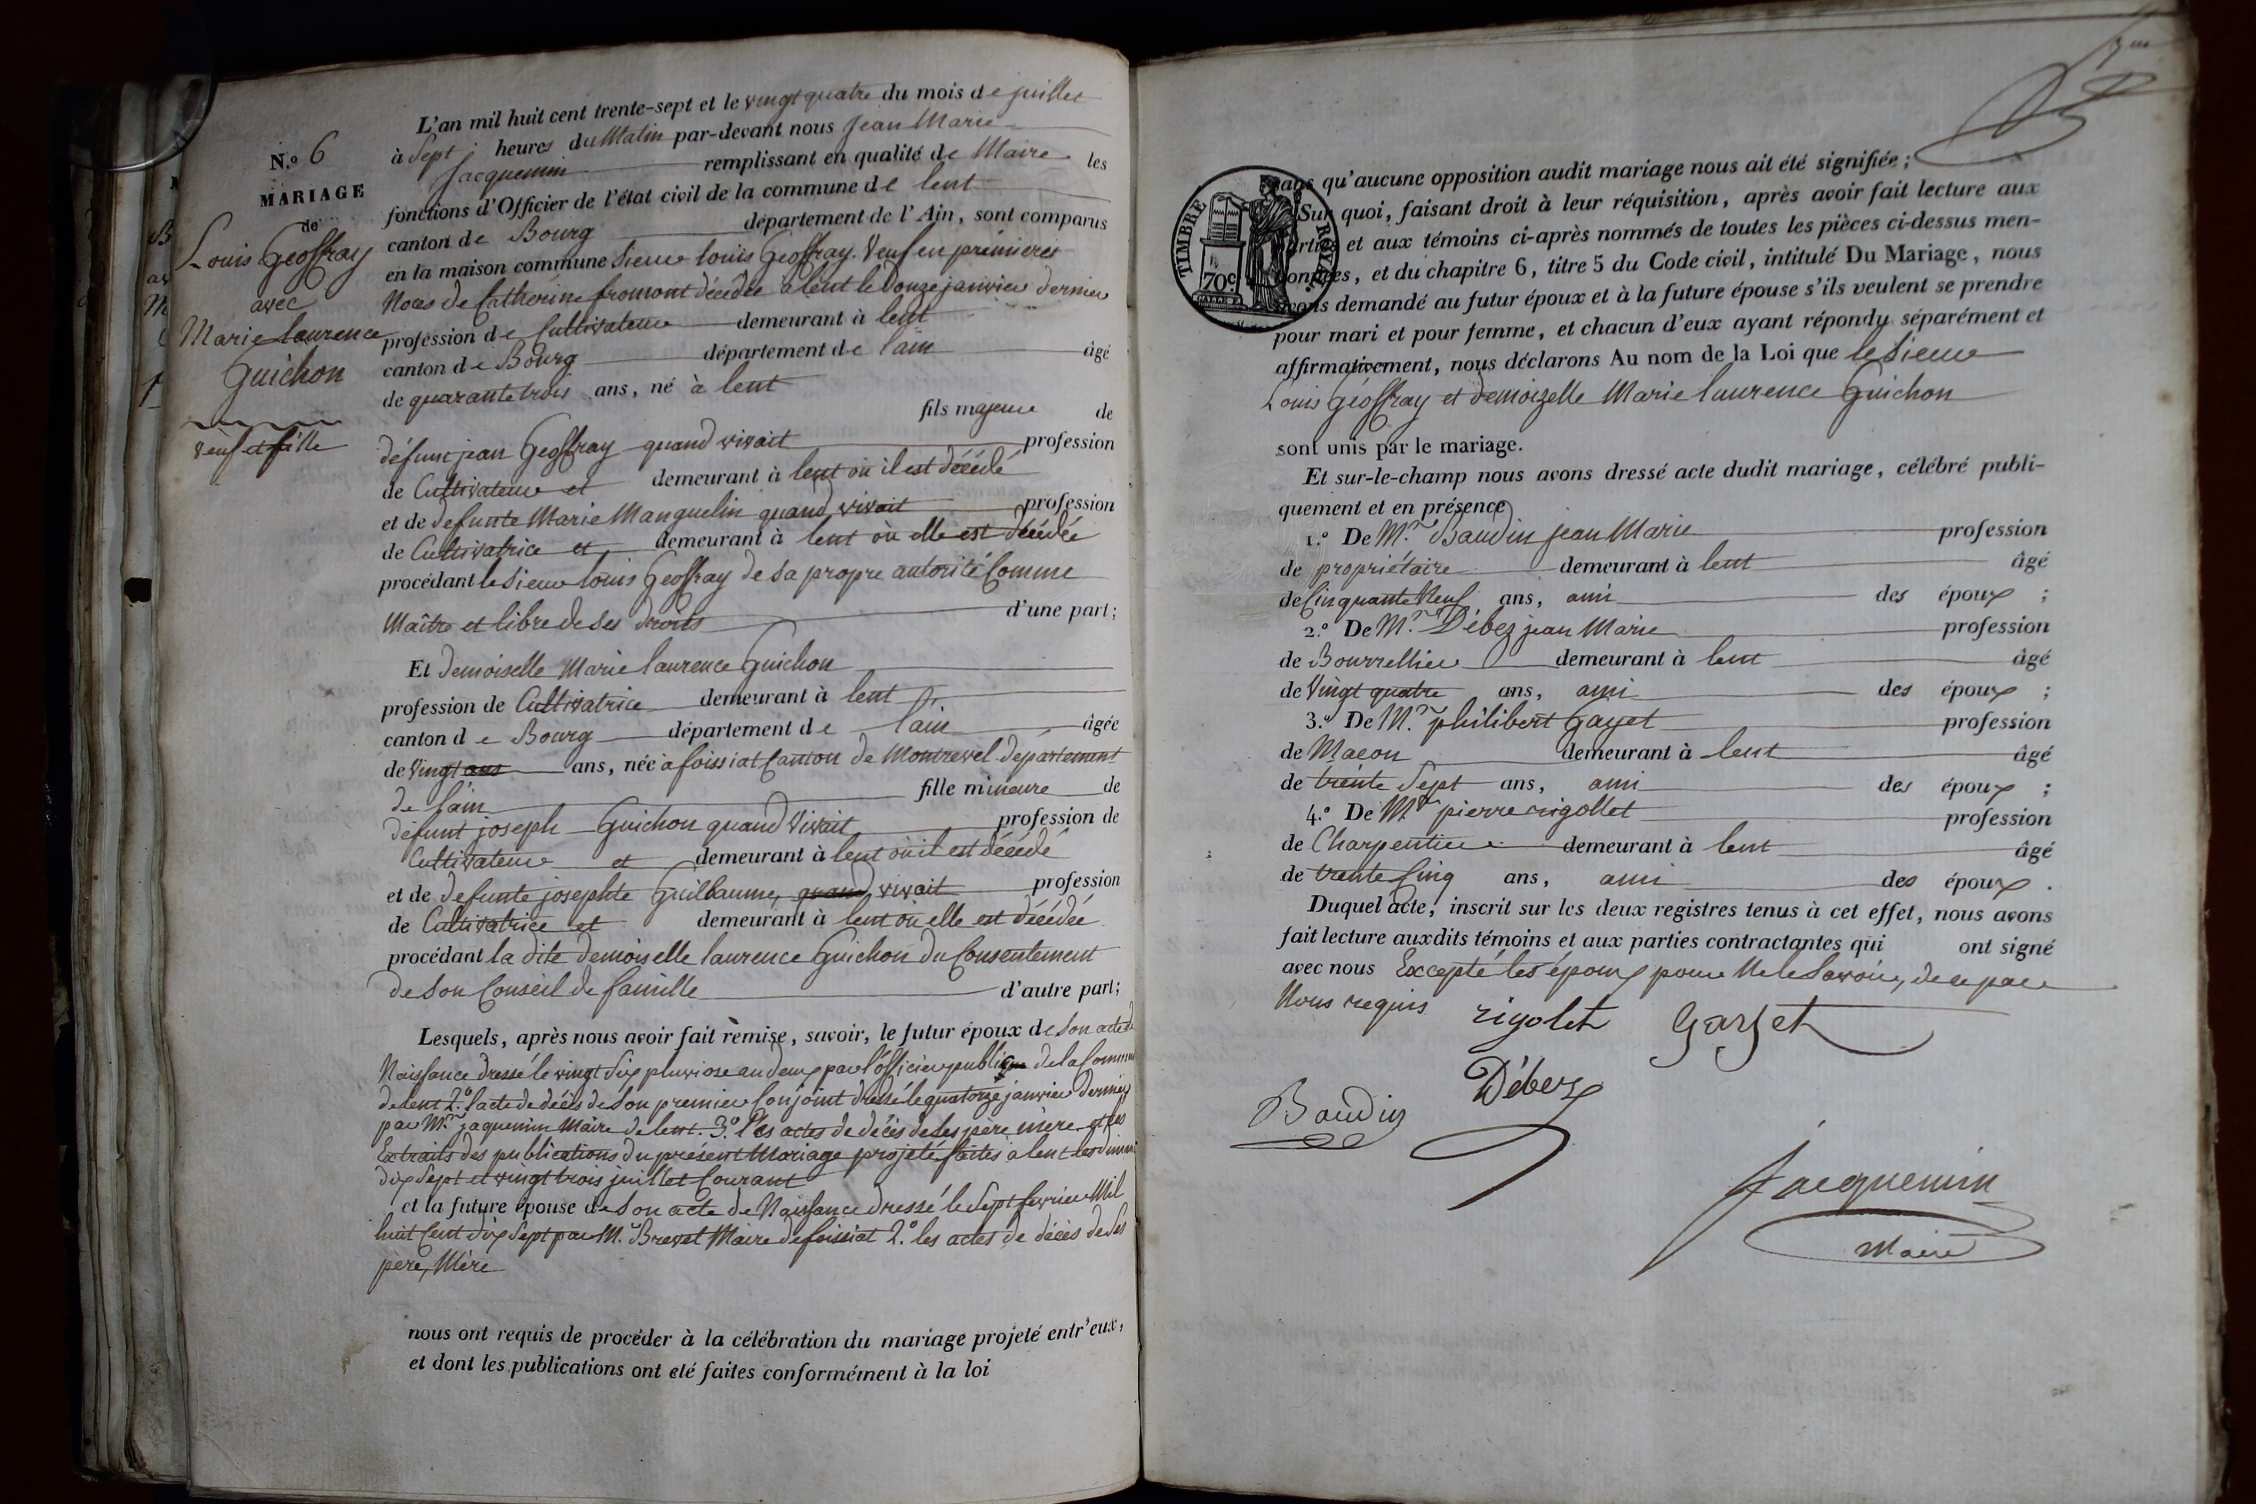 N.º 6
MARIAGE
de
Louis Geoffray
avec
Marie laurence
Guichon
veuf et fille
L'an mil huit cent trente-sept et le vingt quatre du mois de juillet
à Sept heures du Matin par-devant nous Jean Marie
Jacquemin remplissant en qualité de Maire les
fonctions d'Officier de l'état civil de la commune de lent
canton de Bourg département de l'Ain, sont comparus
en la maison commune Sieur louis Geoffray. Veuf en premieres
Noces de Catherine fromont décédée à lent le Douze janvier dernier
profession de Cultivateur demeurant à lent
canton de Bourg département de l'ain âgé
de quarante trois ans, né à lent
fils majeur de
défunt jean Geoffray quand vivait profession
de Cultivateur et demeurant à lent où il est décédé
et de defunte Marie Manguelin quand vivait profession
de Cultivatrice et demeurant à lent où elle est décédée
procédant le Sieur louis Geoffray de sa propre autorité Comme
Maître et libre de Ses droits d'une part;
Et demoiselle Marie laurence Guichon
profession de Cultivatrice demeurant à lent
canton de Bourg département de l'ain âgée
de Vingt ans ans, née à foissiat Canton de Montrevel département
de l'ain fille mineure de
défunt joseph Guichon quand Vivait profession de
Cultivateur et demeurant à lent où il est décédé
et de defunte josephte Guillaume, quand vivait profession
de Cultivatrice et demeurant à lent où elle est décédée
procédant la dite demoiselle laurence Guichon du Consentement
de Son Conseil de famille d'autre part;
Lesquels, après nous avoir fait remise, savoir, le futur époux de Son acte de
Naissance dressé le vingt Six pluviose an deux par l'officier publique de la Commune
de lent 2.º l'acte de décès de Son premier Conjoint dressé le quatorze janvier dernier
par Mr. jaquemin Maire de lent. 3.º les actes de décès de Ses père, mère et les
Extraits des publications du présent Mariage projeté faites à lent les dimanches
dix Sept et vingt trois juillet Courant
et la future épouse de Son acte de Naissance dressé le Sept fevrier Mil
huit Cent dix Sept par M. Brevet Maire de foissiat 2.º les actes de décès de Ses
père, Mère
nous ont requis de procéder à la célébration du mariage projeté entr'eux,
et dont les publications ont été faites conformément à la loi
TIMBRE ROYAL
70c
sans qu'aucune opposition audit mariage nous ait été signifiée;
Sur quoi, faisant droit à leur réquisition, après avoir fait lecture aux
parties et aux témoins ci-après nommés de toutes les pièces ci-dessus men-
tionnées, et du chapitre 6, titre 5 du Code civil, intitulé Du Mariage, nous
avons demandé au futur époux et à la future épouse s'ils veulent se prendre
pour mari et pour femme, et chacun d'eux ayant répondu séparément et
affirmativement, nous déclarons Au nom de la Loi que le Sieur
Louis Géoffray et demoizelle Marie laurence Guichon
sont unis par le mariage.
Et sur-le-champ nous avons dressé acte dudit mariage, célébré publi-
quement et en présence
1.º De Mr. Baudin jean Marie profession
de propriétaire demeurant à lent âgé
de Cinquante Neuf ans, ami des époux;
2.º De Mr. Débez jean Marie profession
de Bourrellier demeurant à lent âgé
de Vingt quatre ans, ami des époux;
3.º De Mr. philibert Gayet profession
de Maçon demeurant à lent âgé
de trente Sept ans, ami des époux;
4.º De Mr pierre rigollet profession
de Charpentier demeurant à lent âgé
de trente Cinq ans, ami des époux.
Duquel acte, inscrit sur les deux registres tenus à cet effet, nous avons
fait lecture auxdits témoins et aux parties contractantes qui ont signé
avec nous Excepté les époux pour Ne le Savoir, de ce par
Nous requis
rigolet Gayet
Débez
Baudin
Jacquemin
Maire